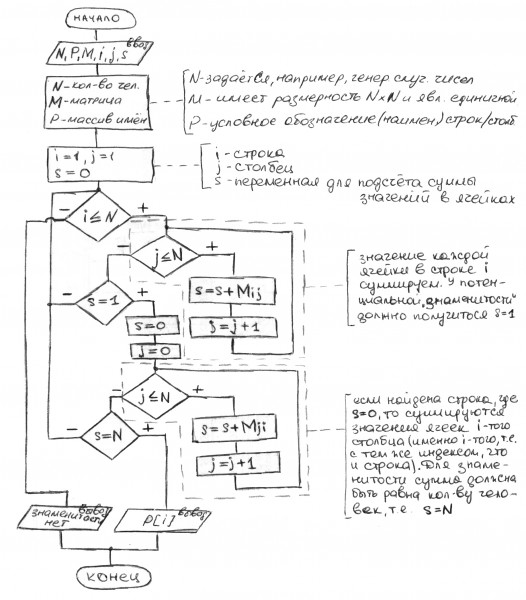 НАЧАЛО
N, P, M, i, j, s
ВВОД
N-кол-во чел.
M-матрица
P-массив имён
N-задаётся, например, генер случ. чисел
M - имеет размерность N×N и явл. единичной
P-условное обозначение (наимен) строк/столб
i=1, j=1
s=0
i - строка
j - столбец
s - переменная для подсчёта суммы
значений в ячейках
i≤N
- +
j≤N
- +
s=s+Mij
j=j+1
значение каждой
ячейки в строке i
суммируем. У потен-
циальной "знаменитости"
должно получиться s=1
s=1
- +
s=0
j=0
j≤N
- +
s=s+Mji
j=j+1
если найдена строка, где
s=0, то суммируются
значения ячеек i-того
столбца (именно i-того, т.е.
с тем же индексом, что
и строка). Для знаме-
нитости сумма должна
быть равна кол-ву чело-
век, т.е. s=N
s=N
- +
ВЫВОД
знаменитости
нет
ВЫВОД
P[i]
КОНЕЦ